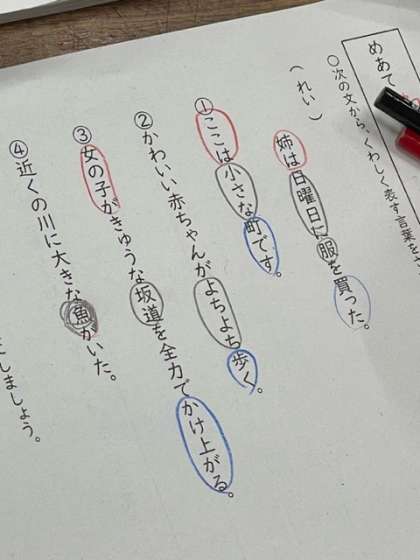 めあて
○次の文から、くわしく表す言葉を
（れい）
姉は日曜日に服を買った。
①ここは小さな町です。
②かわいい赤ちゃんがよちよち歩く。
③女の子がきゅうな坂道を全力でかけ上がる。
④近くの川に大きな魚がいた。
しましょう。